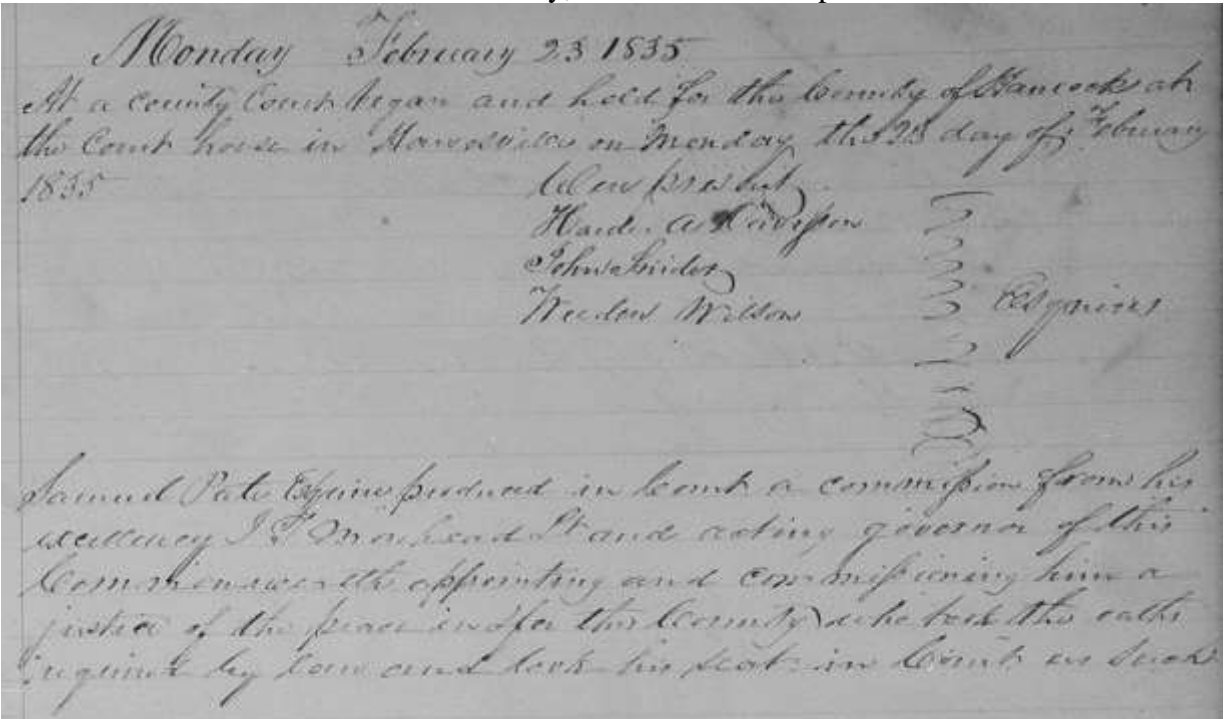 Monday February 23 1835
At a County Court began and held for the County of Hancock at
the Court house in Hawesville on Monday the 23 day of February
1835
Were present
Hardin A
John Snider
Weeden Wilson
Esquires
Samuel Pate Esquire produced in Court a commission from his
excellency J T Morehead Lt and acting governor of this
Commonwealth appointing and commissioning him a
justice of the peace in & for this County who took the oaths
required by law and took his seat in Court as such